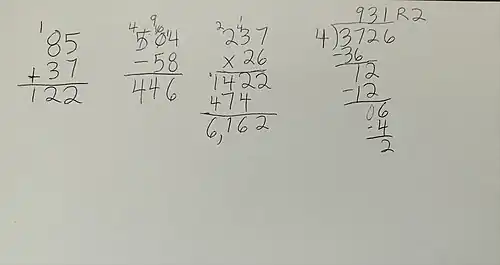 1
85
+ 37
122
4 9 10 1
504
- 58
446
2 1
237
x 26
1422
474
6,162
931 R2
4)3726
-36
12
-12
06
-4
2